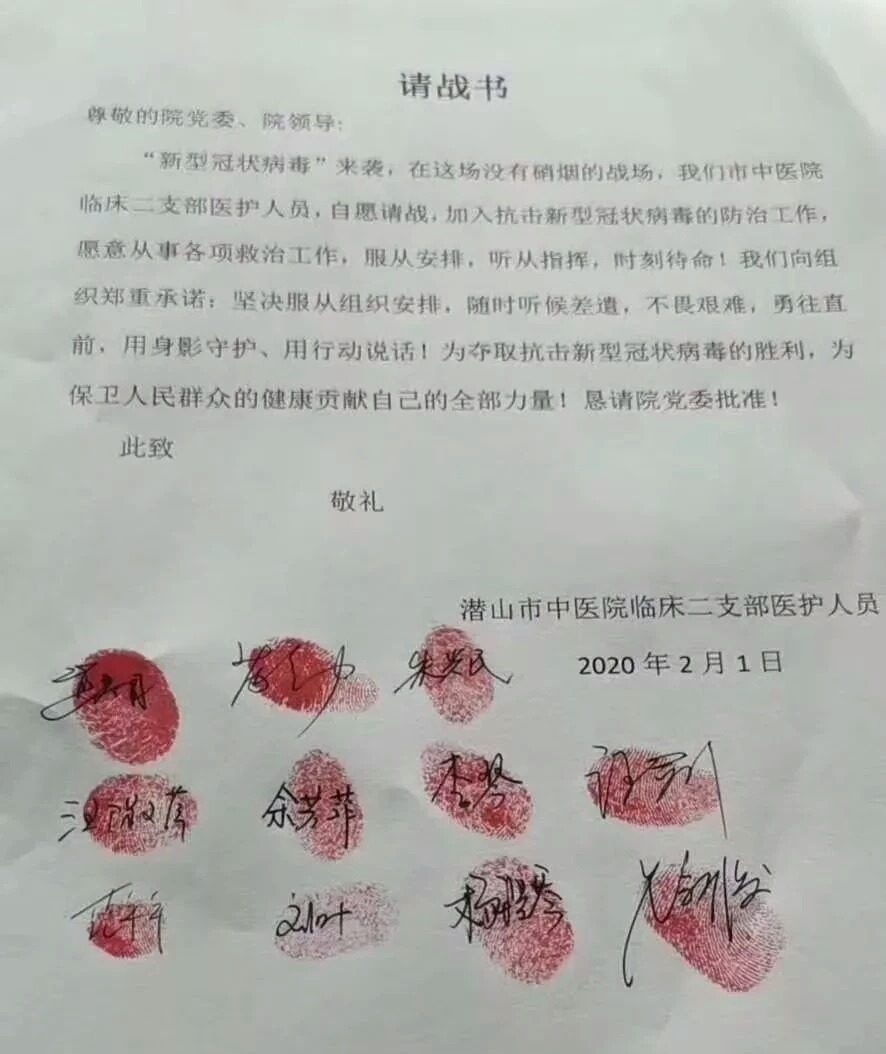 请战书
尊敬的院党委、院领导:
“新型冠状病毒”来袭，在这场没有硝烟的战场，我们市中医院
临床二支部医护人员，自愿请战，加入抗击新型冠状病毒的防治工作，
愿意从事各项救治工作，服从安排，听从指挥，时刻待命！我们向组
织郑重承诺：坚决服从组织安排，随时听候差遣，不畏艰难，勇往直
前，用身影守护、用行动说话！为夺取抗击新型冠状病毒的胜利，为
保卫人民群众的健康贡献自己的全部力量！恳请院党委批准！
此致
敬礼
潜山市中医院临床二支部医护人员
2020 年 2 月 1 日
余芳萍 李琴
刘叶